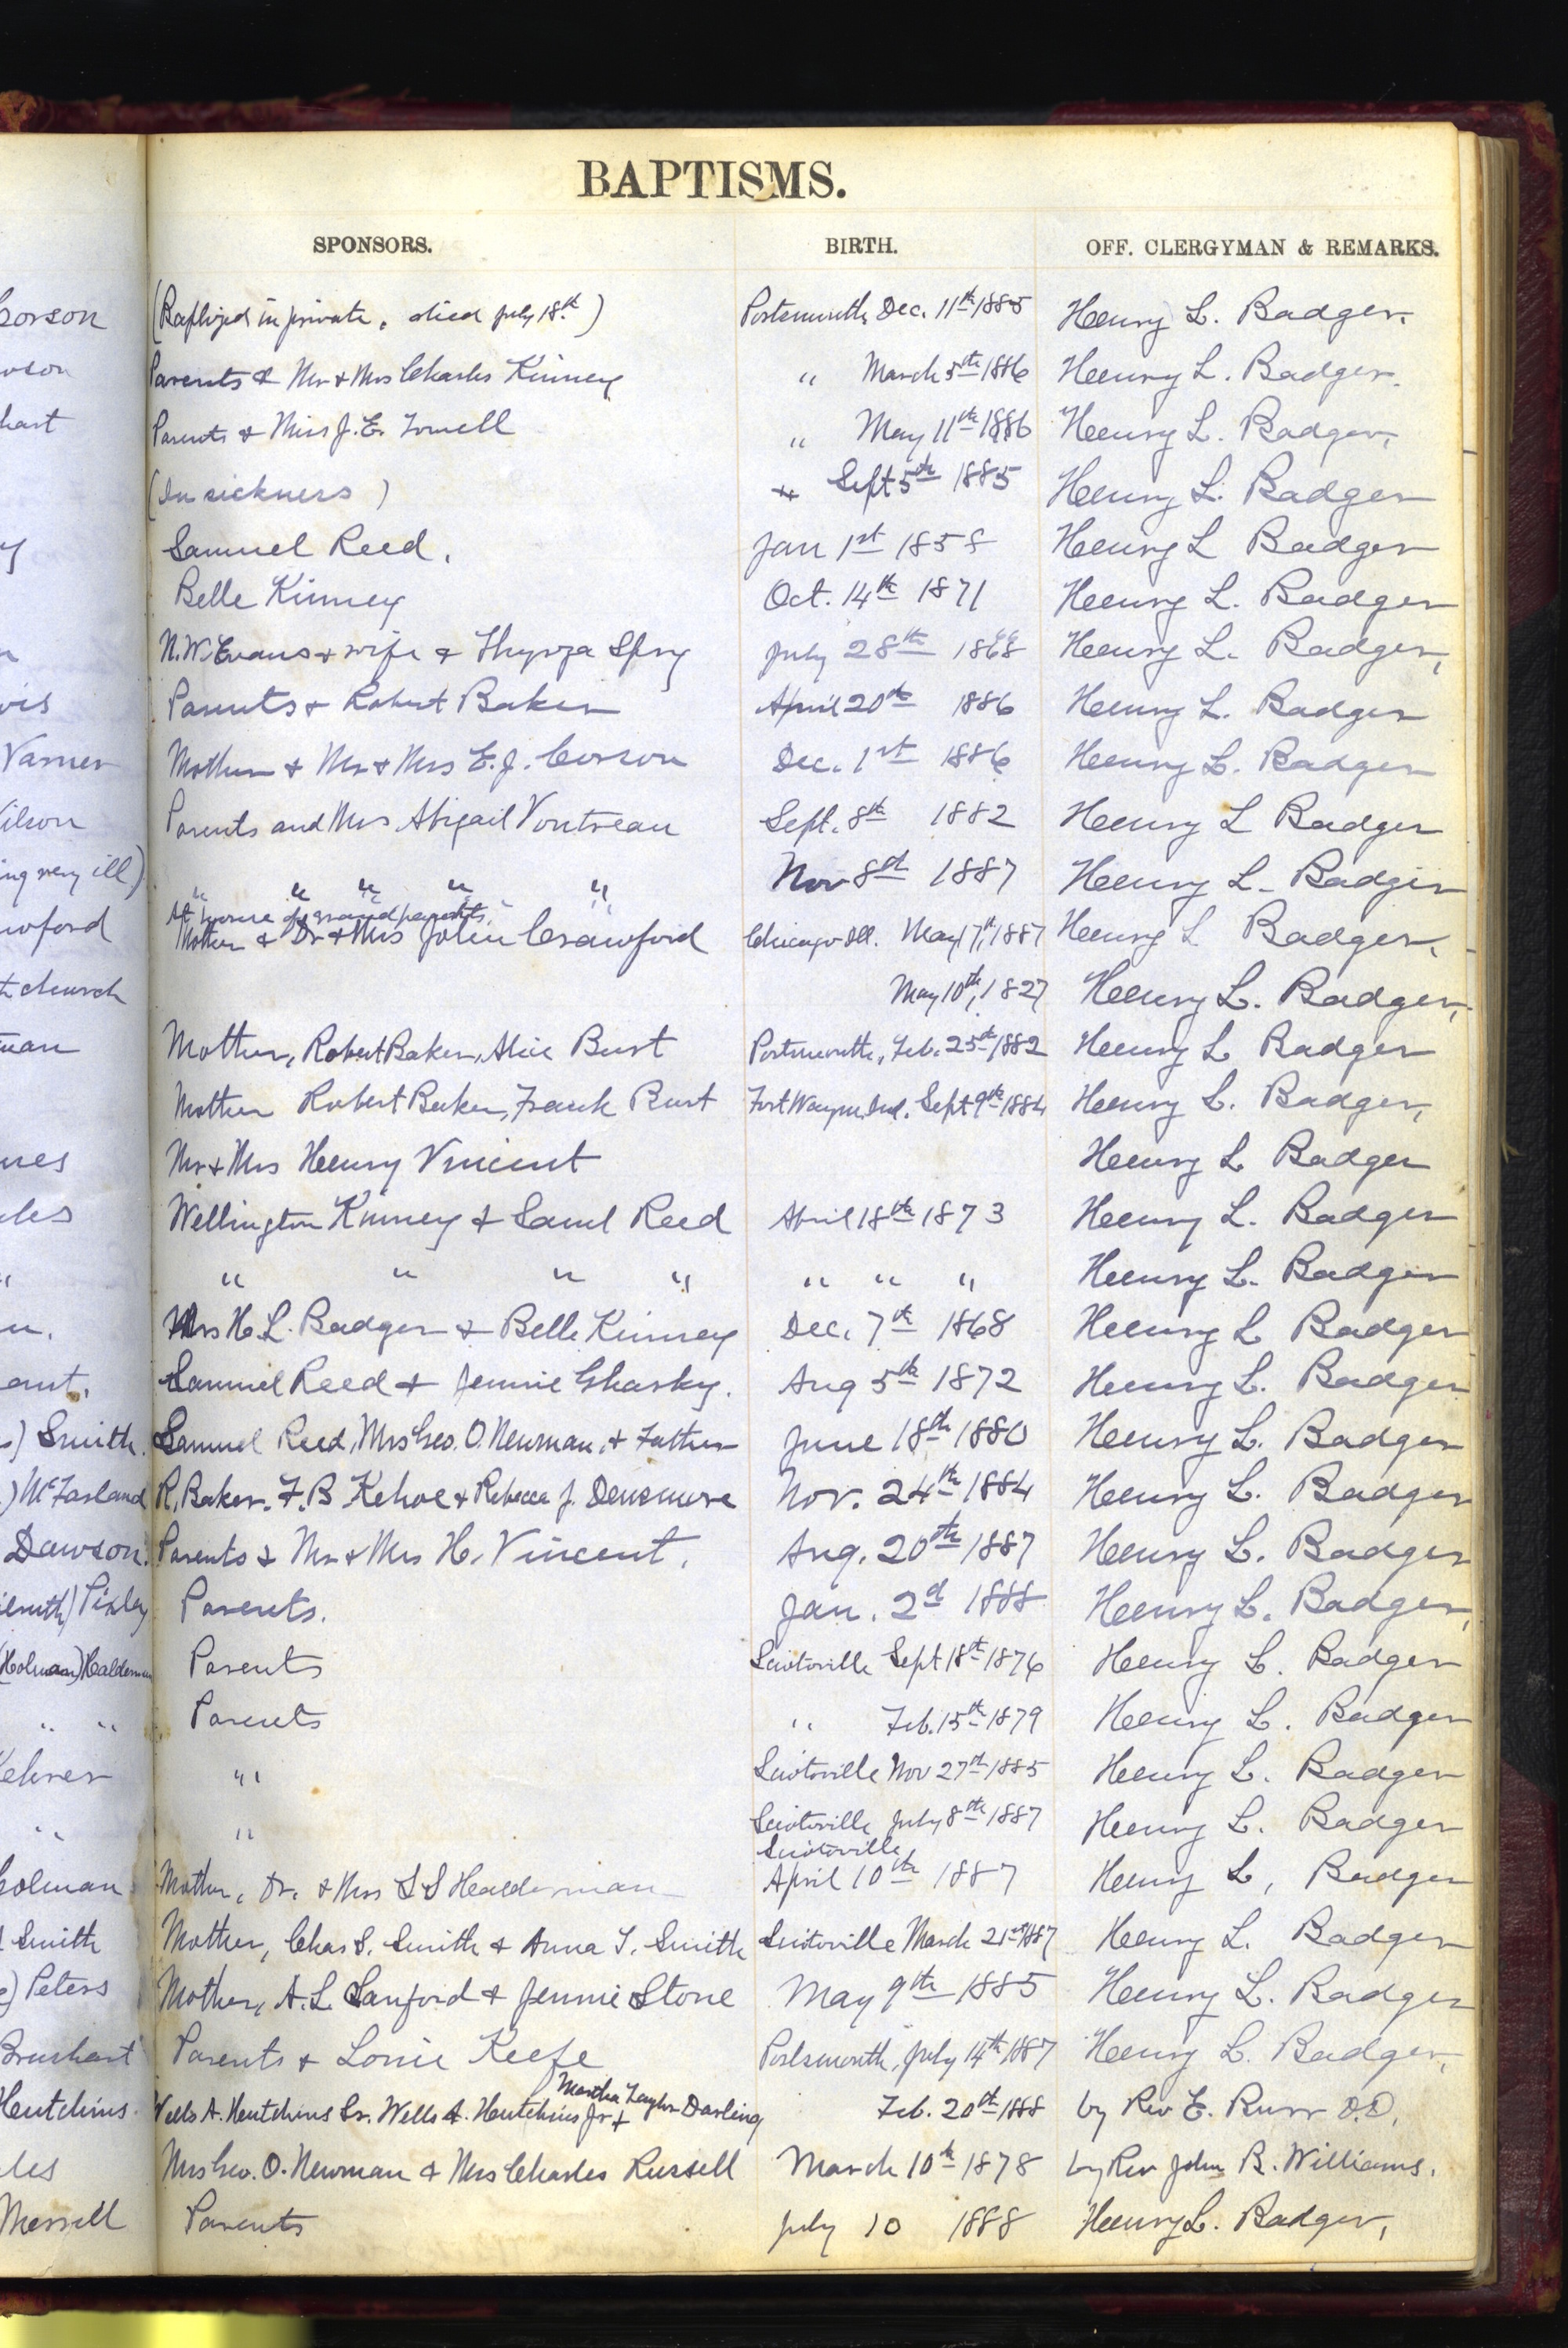 BAPTISMS.
SPONSORS. BIRTH. OFF. CLERGYMAN & REMARKS.
(Baptized in private, died July 18th.) Portsmouth, Dec. 11th 1885 Henry L. Badger.
Parents & Mr & Mrs Charles Kinney " March 5th 1886 Henry L. Badger.
hart Parents & Miss J. E. Towell " May 11th 1886 Henry L. Badger,
(In sickness) " Sept 5th 1885 Henry L. Badger
y Samuel Reed. Jan 1st 1858 Henry L Badger
Belle Kinney Oct. 14th 1871 Henry L. Badger
N. W. Evans & wife & Thyrza Spry July 28th Henry L. Badger,
vis Parents & Robert Baker April 20th 1886 Henry L. Badger
Varner Mother & Mr & Mrs E. J. Corson Dec. 1st 1886 Henry L. Badger
ilson Parents and Mrs Abigail Vontreau Sept. 8th 1882 Henry L Badger
ing very ill) " " " " " Nov 8th 1887 Henry L. Badger
At house of grandparents.
wford Mother & Dr & Mrs John Crawford Chicago Ill. May 17th, 1887 Henry L Badger.
church May 10th, 1827 Henry L. Badger,
man Mother, Robert Baker, Alice Burt Portsmouth, Feb. 25th 1882 Henry L Badger
Mother Robert Baker, Frank Burt Fort Wayne Ind. Sept 9th 1884 Henry L. Badger,
nes Mr & Mrs Henry Vincent Henry L Badger
les Wellington Kinney & Saml Reed April 18th 1873 Henry L. Badger
" " " " " " " " Henry L. Badger
Mrs H. L. Badger & Belle Kinney Dec. 7th 1868 Henry L Badger
ant. Samuel Reed & Jennie Gharky. Aug 5th 1872 Henry L. Badger
s) Smith. Samuel Reed, Mrs Geo. O. Newman, & Father June 18th 1880 Henry L. Badger
) McFarland R. Baker. F. B. Kehoe & Rebecca J. Densmore Nov. 24th 1884 Henry L. Badger
Dawson. Parents & Mr & Mrs H. Vincent. Aug. 20th 1887 Henry L. Badger
Pixley Parents. Jan. 2d 1888 Henry L. Badger,
(Holman) Haldeman Parents Sciotoville Sept 18th 1876 Henry L. Badger
" " Parents " Feb. 15th 1879 Henry L. Badger
ehrer " Sciotoville Nov 27th 1885 Henry L. Badger
" " " Sciotoville July 8th 1887 Henry L. Badger
Sciotoville
olman Mother, Dr. & Mrs S S Halderman April 10th 1887 Henry L, Badger
Smith Mother, Chas S. Smith & Anna T. Smith Sciotoville March 21st 1887 Henry L. Badger
) Peters Mother, A. L. Sanford & Jennie Stone May 9th 1885 Henry L. Badger
Brushart Parents & Louie Keefe Portsmouth, July 14th 1887 Henry L. Badger,
Martha Taylor Darling
Hutchins. Wells A. Hutchins Sr. Wells A. Hutchins Jr & Feb. 20th 1888 by Rev E. Burr D.D.
les Mrs Geo. O. Newman & Mrs Charles Russell March 10th 1878 by Rev John B. Williams.
Merrill Parents July 10 1888 Henry L. Badger,